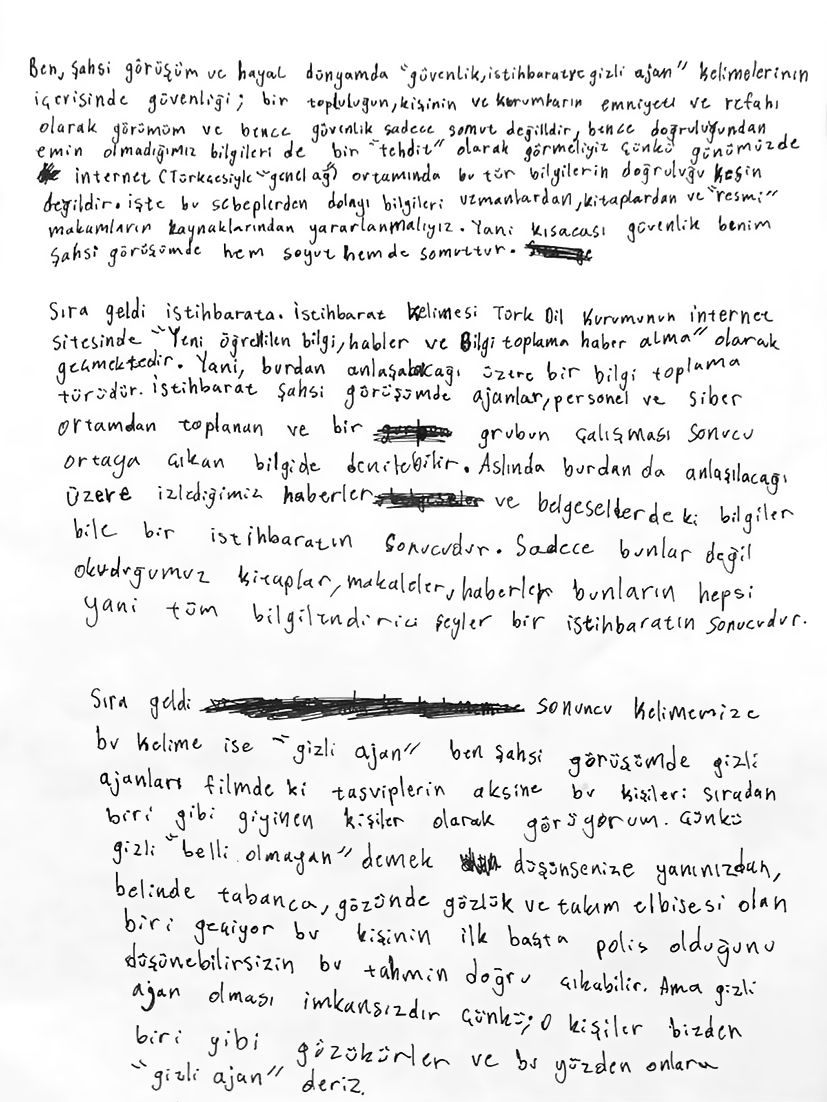 Ben, şahsi görüşüm ve hayal dünyamda "güvenlik, istihbarat ve gizli ajan" kelimelerinin
içerisinde güvenliği; bir topluluğun, kişinin ve kurumların emniyeti ve refahı
olarak görümüm ve bence güvenlik sadece somut değilldir, bence doğruluğundan
emin olmadığımız bilgileri de bir "tehdit" olarak görmeliyiz çünkü günümüzde
internet (Türkçesiyle "genel ağ") ortamında bu tür bilgilerin doğruluğu kesin
değildir. işte bu sebeplerden dolayı bilgileri uzmanlardan, kitaplardan ve "resmi"
makamların kaynaklarından yararlanmalıyız. Yani kısacası güvenlik benim
şahsi görüşümde hem soyut hem de somuttur.
Sıra geldi istihbarata. İstihbarat kelimesi Türk Dil Kurumunun internet
sitesinde "Yeni öğretilen bilgi, habler ve Bilgi toplama haber alma" olarak
geçmektedir. Yani, burdan anlaşabacağı üzere bir bilgi toplama
türüdür. istihbarat şahsi görüşümde ajanlar, personel ve siber
ortamdan toplanan ve bir grubun çalışması sonucu
ortaya çıkan bilgide denilebilir. Aslında burdan da anlaşılacağı
üzere izlediğimiz haberler ve belgesellerde ki bilgiler
bile bir istihbaratın sonucudur. Sadece bunlar değil
okuduğumuz kitaplar, makaleler, haberler bunların hepsi
yani tüm bilgilendirici şeyler bir istihbaratın sonucudur.
Sıra geldi sonuncu kelimemize
bu kelime ise "gizli ajan" ben şahsi görüşümde gizli
ajanları filmde ki tasviplerin aksine bu kişileri sıradan
biri gibi giyinen kişiler olarak görüyorum. Çünkü
gizli "belli olmayan" demek düşünsenize yanınızdan,
belinde tabanca, gözünde gözlük ve takım elbisesi olan
biri geçiyor bu kişinin ilk başta polis olduğunu
düşünebilirsizin bu tahmin doğru çıkabilir. Ama gizli
ajan olması imkansızdır çünkü; o kişiler bizden
biri gibi gözükürler ve bu yüzden onlara
"gizli ajan" deriz.